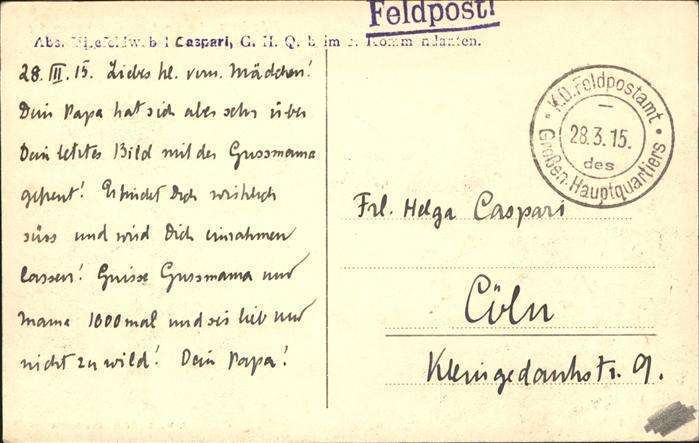 Feldpost!
Abs. Vizefeldw.bel Caspari, G. H. Q. beim Kommandanten.
28. III. 15. Liebes kl. Mädchen!
Dein Papa hat sich aber sehr über
Dein letztes Bild mit der Grossmama
gefreut! Er findet Dich wirklich
süss und wird Dich einrahmen
lassen! Grüsse Grossmama und
Mama 1000 mal und sei lieb und
nicht zu wild! Dein Papa!
K.D. Feldpostamt
28.3.15.
des
Großen Hauptquartiers
Frl. Helga Caspari
Cöln
Kleingedankstr. 9.